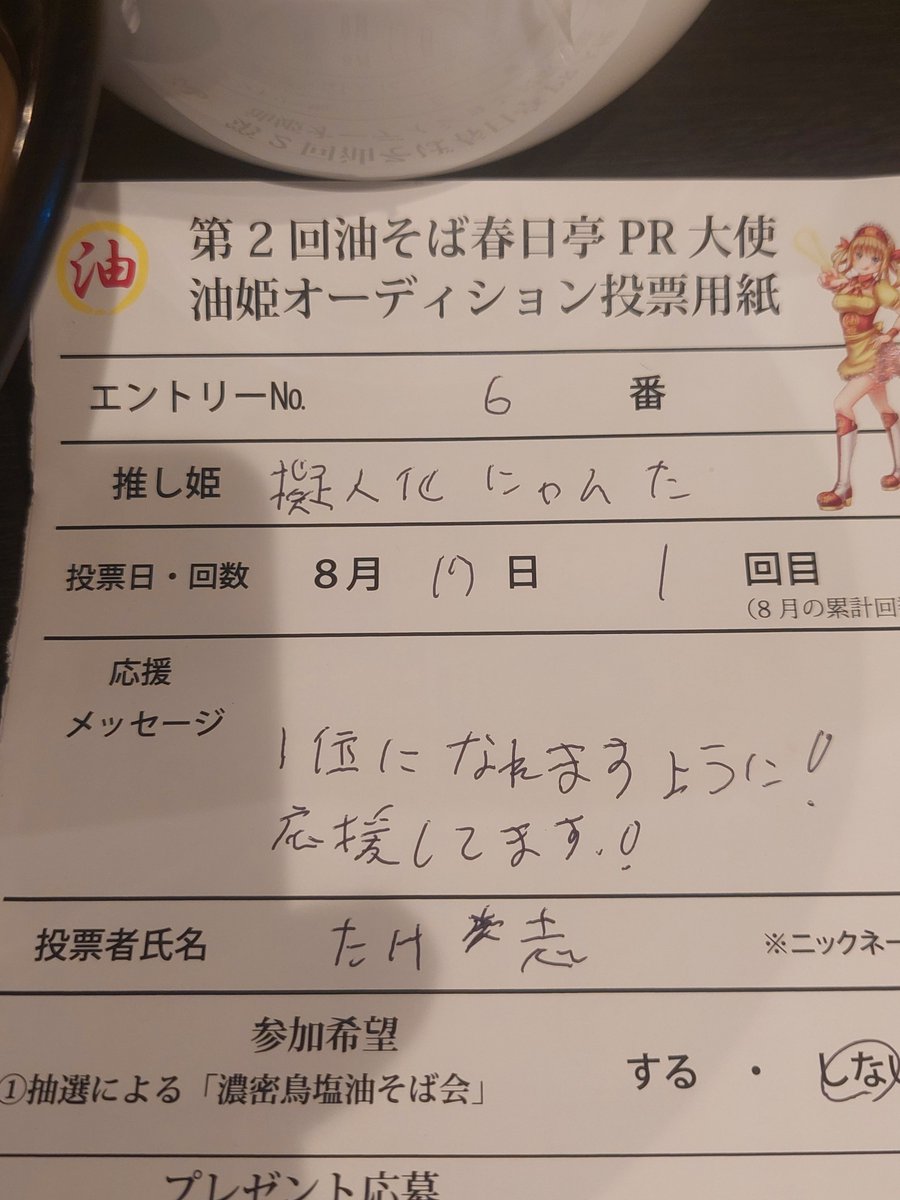 油
第2回油そば春日亭PR大使
油姫オーディション投票用紙
エントリーNo. 6 番
推し姫 擬人化にゃんた
投票日・回数 8月 17 日 1 回目
(8月の累計回
応援
メッセージ
1位になれますように!
応援してます!
投票者氏名 たけ 志 ※ニックネー
参加希望
①抽選による「濃密鳥塩油そば会」 する ・ しない
プレゼント応募